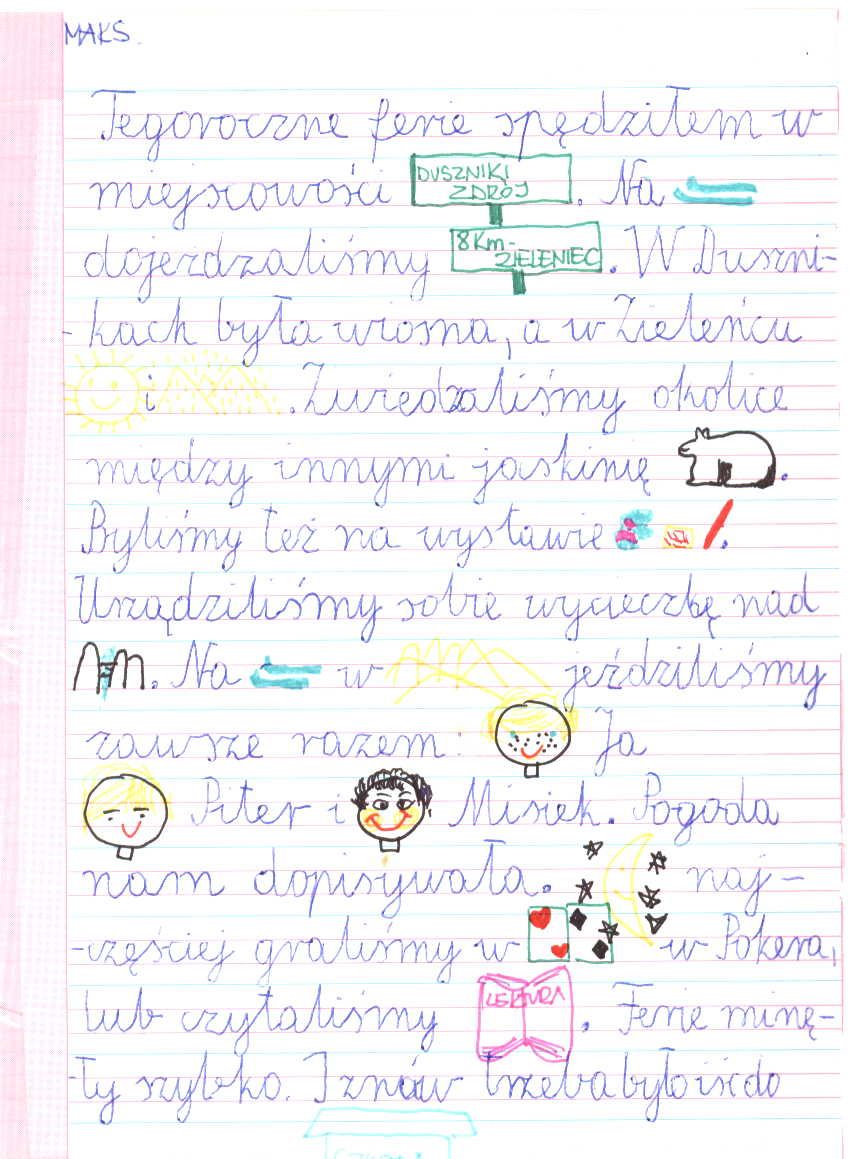 MAKS.
Tegoroczne ferie spędziłem w
miejscowości DUSZNIKI ZDRÓJ. Na
dojeżdzaliśmy 8 Km - ZIELENIEC. W Duszni-
-kach była wiosna, a w Zieleńcu
i . Zwiedzaliśmy okolice
między innymi jaskinię .
Byliśmy też na wystawie .
Urządziliśmy sobie wycieczkę nad
. Na w jeździliśmy
zawsze razem: Ja
Piter i Misiek. Pogoda
nam dopisywała. naj-
-częściej graliśmy w w Pokera,
lub czytaliśmy LEKTURA . Ferie minę-
-ły szybko. I znów trzeba było iść do